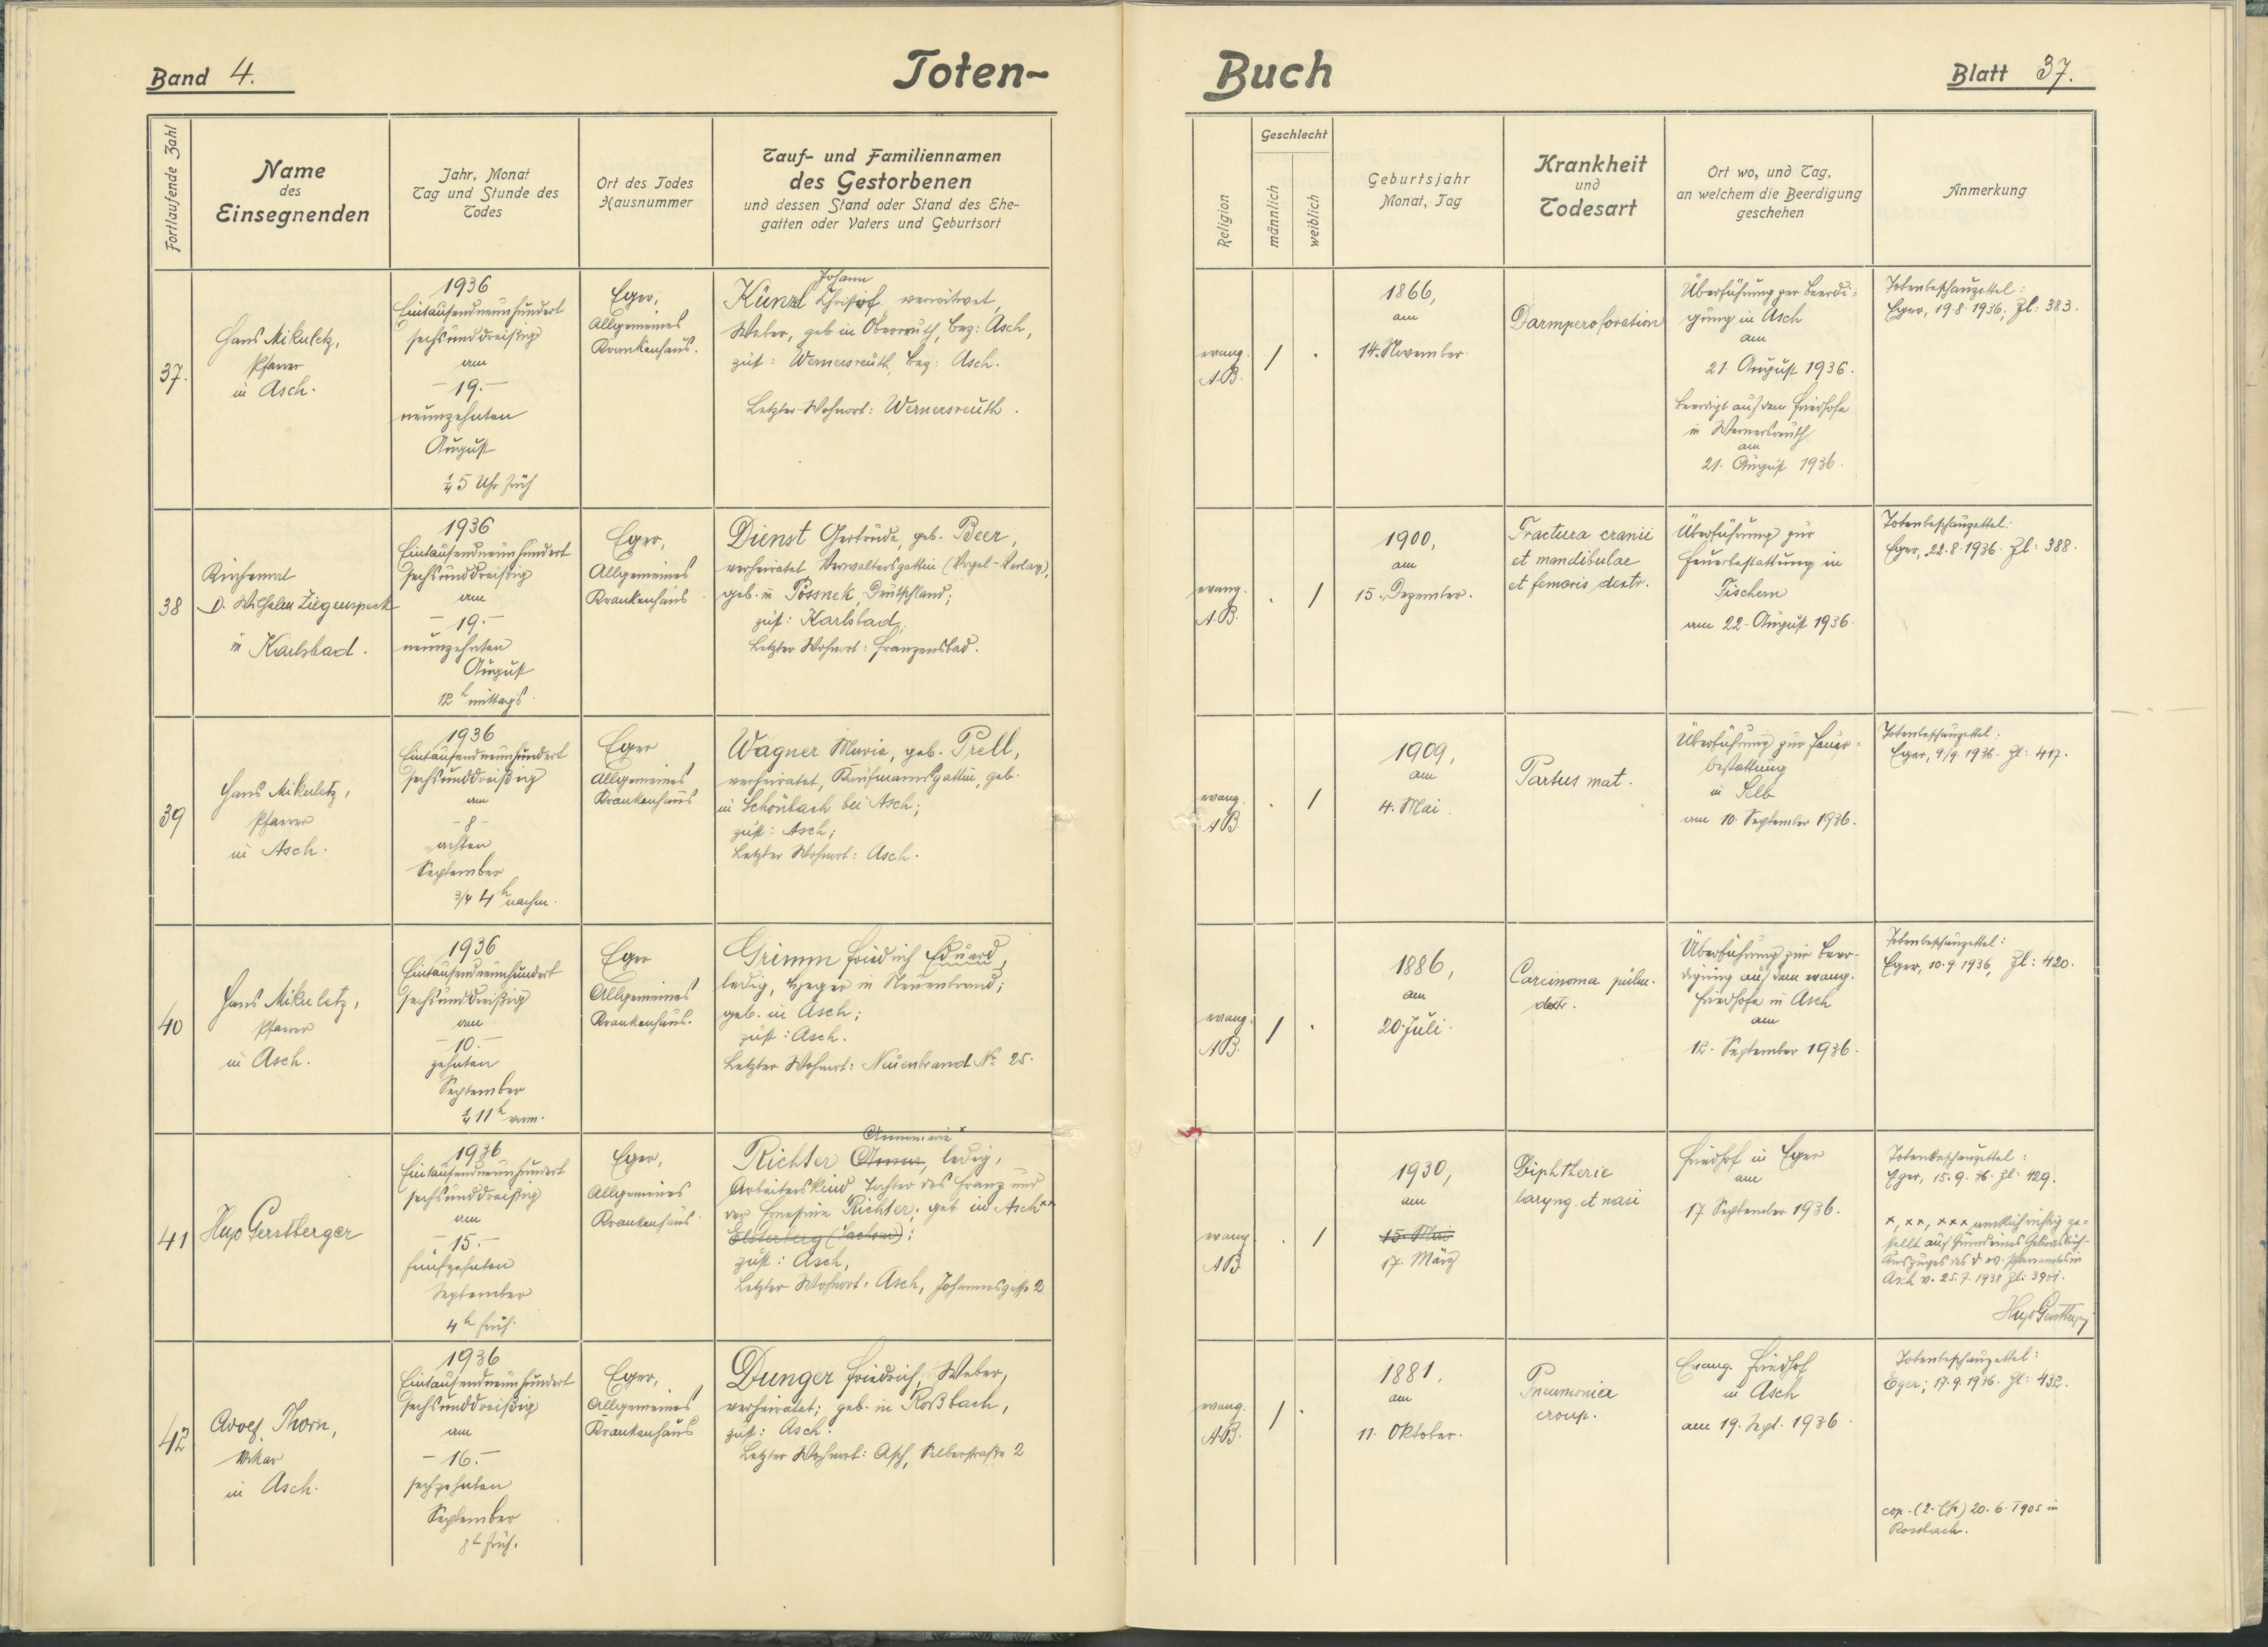 Band 4.
Toten-
Buch
Blatt 37.
Fortlaufende Zahl
Name
des
Einsegnenden
Jahr, Monat
Tag und Stunde des
Todes
Ort des Todes
Hausnummer
Tauf- und Familiennamen
des Gestorbenen
und dessen Stand oder Stand des Ehe-
gatten oder Vaters und Geburtsort
Religion
Geschlecht
männlich
weiblich
Geburtsjahr
Monat, Tag
Krankheit
und
Todesart
Ort wo, und Tag,
an welchem die Beerdigung
geschehen
Anmerkung
37.
Hans Mikuletz,
Pfarrer
in Asch.
1936
Eintausendneunhundert
sechsunddreißig
am
- 19. -
neunzehnten
August
¼ 5 Uhr früh
Eger,
Allgemeines
Krankenhaus.
Johann
Künzl Christof, verwitwet,
Weber, geb in Oberreuth, Bez: Asch,
zust: Wernersreuth, Bez: Asch.
Letzter Wohnort: Wernersreuth.
evang.
A.B.
/ .
1866,
am
14. November.
Darmperoforation
Überführung zur Beerdi-
gung in Asch
am
21 August 1936.
beerdigt auf dem Friedhofe
in Wernersreuth
am
21. August 1936.
Totenbeschauzettel:
Eger, 19.8.1936, Zl: 383.
38
Kirchenrat
D. Wilhelm Ziegenspeck
in Karlsbad.
1936
Eintausendneunhundert
sechsunddreißig
am
- 19. -
neunzehnten
August
12 h mittags.
Eger,
Allgemeines
Krankenhaus.
Dienst Gertrude, geb. Beer,
verheiratet Verwaltersgattin (Vogel-Verlag),
geb. in Pössnek, Deutschland;
zust: Karlsbad;
Letzter Wohnort: Franzensbad.
evang.
A.B.
. /
1900,
am
15. Dezember.
Fractura cranii
et mandibulae
et femoris dextr.
Überführung zur
Feuerbestattung in
Fischern
am 22. August 1936.
Totenbeschauzettel:
Eger, 22.8.1936. Zl: 388.
39
Hans Mikuletz,
Pfarrer
in Asch.
1936
Eintausendneunhundert
sechsunddreißig
am
- 8 -
achten
September
3/4 4 h nachm.
Eger
Allgemeines
Krankenhaus
Wagner Maria, geb. Prell,
verheiratet, Kaufmannsgattin, geb.
in Schönbach bei Asch;
zust: Asch;
Letzter Wohnort: Asch.
evang.
A.B.
. /
1909,
am
4. Mai.
Partus mat.
Überführung zur Feuer-
bestattung
in Selb
am 10. September 1936.
Totenbeschauzettel:
Eger, 9/9 1936. Zl: 417.
40
Hans Mikuletz,
Pfarrer
in Asch.
1936
Eintausendneunhundert
sechsunddreißig
am
- 10. -
zehnten
September
¼ 11 h vorm.
Eger
Allgemeines
Krankenhaus.
Grimm Friedrich Eduard,
ledig, Heger in Neuenbrand;
geb. in Asch;
zust: Asch.
Letzter Wohnort: Neuenbrand No 25.
evang.
A.B.
/ .
1886,
am
20. Juli.
Carcinoma pulm.
dextr.
Überführung zur Beer-
digung auf dem evang.
Friedhofe in Asch
am
12. September 1936.
Totenbeschauzettel:
Eger, 10.9.1936, Zl: 420.
41
Hugo Gerstberger
1936
Eintausendneunhundert
sechsunddreißig
am
- 15. -
fünfzehnten
September
4 h früh.
Eger,
Allgemeines
Krankenhaus.
Annemarie x
Richter Anna, ledig,
Arbeiterskind, Tochter des Franz und
der Ernestine Richter; geb in Asch xx
Elsterberg (Sachsen);
zust: Asch,
Letzter Wohnort: Asch, Johannesgasse 2
evang.
A.B.
. /
1930,
am
15. Mai
17. März
Diphtherie
laryng. et nasi
Friedhof in Eger
am
17 September 1936.
Totenbeschauzettel:
Eger, 15.9.36. Zl: 429.
x, xx, xxx amtlich richtig ge-
stellt auf Grund eines Geburtsbuch-
Auszuges des d. ev. Pfarramtes in
Asch v. 25.7.1938 Zl: 3901.
Hugo Gerstberger
42
Adolf Thorn,
Vikar
in Asch.
1936
Eintausendneunhundert
sechsunddreißig
am
- 16. -
sechzehnten
September
8 h früh.
Eger,
Allgemeines
Krankenhaus
Dunger Friedrich, Weber,
verheiratet; geb. in Roßbach,
zust: Asch.
Letzter Wohnort: Asch, Selberstraße 2
evang.
A.B.
/ .
1881.
am
11. Oktober.
Pneumonia
croup.
Evang. Friedhof
in Asch
am 19. Sept. 1936.
Totenbeschauzettel:
Eger; 17.9.1936. Zl: 432.
cop. (2. Eh) 20.6.1905 in
Rossbach.